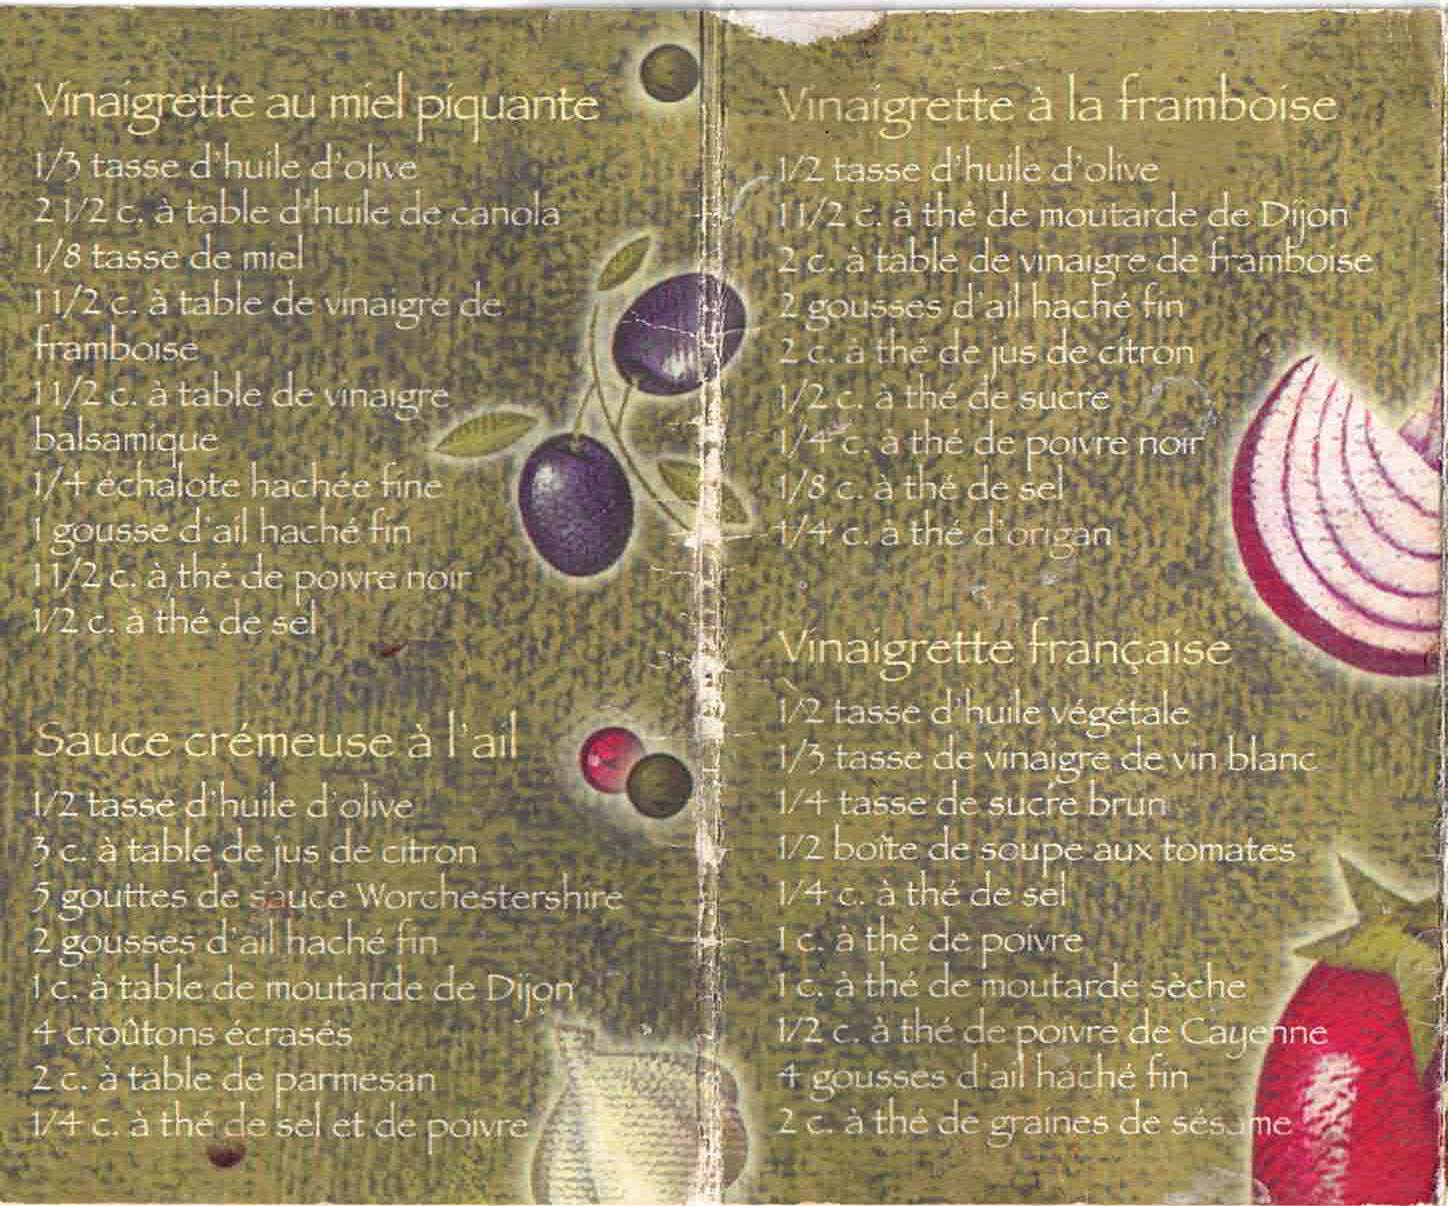 Vinaigrette au miel piquante
1/3 tasse d'huile d'olive
2 1/2 c. à table d'huile de canola
1/8 tasse de miel
1 1/2 c. à table de vinaigre de
framboise
1 1/2 c. à table de vinaigre
balsamique
1/4 échalote hachée fine
1 gousse d'ail haché fin
1 1/2 c. à thé de poivre noir
1/2 c. à thé de sel
Sauce crémeuse à l'ail
1/2 tasse d'huile d'olive
3 c. à table de jus de citron
5 gouttes de sauce Worchestershire
2 gousses d'ail haché fin
1 c. à table de moutarde de Dijon
4 croûtons écrasés
2 c. à table de parmesan
1/4 c. à thé de sel et de poivre
Vinaigrette à la framboise
1/2 tasse d'huile d'olive
1 1/2 c. à thé de moutarde de Dijon
2 c. à table de vinaigre de framboise
2 gousses d'ail haché fin
2 c. à thé de jus de citron
1/2 c. à thé de sucre
1/4 c. à thé de poivre noir
1/8 c. à thé de sel
1/4 c. à thé d'origan
Vinaigrette française
1/2 tasse d'huile végétale
1/3 tasse de vinaigre de vin blanc
1/4 tasse de sucre brun
1/2 boîte de soupe aux tomates
1/4 c. à thé de sel
1 c. à thé de poivre
1 c. à thé de moutarde sèche
1/2 c. à thé de poivre de Cayenne
4 gousses d'ail haché fin
2 c. à thé de graines de sésame